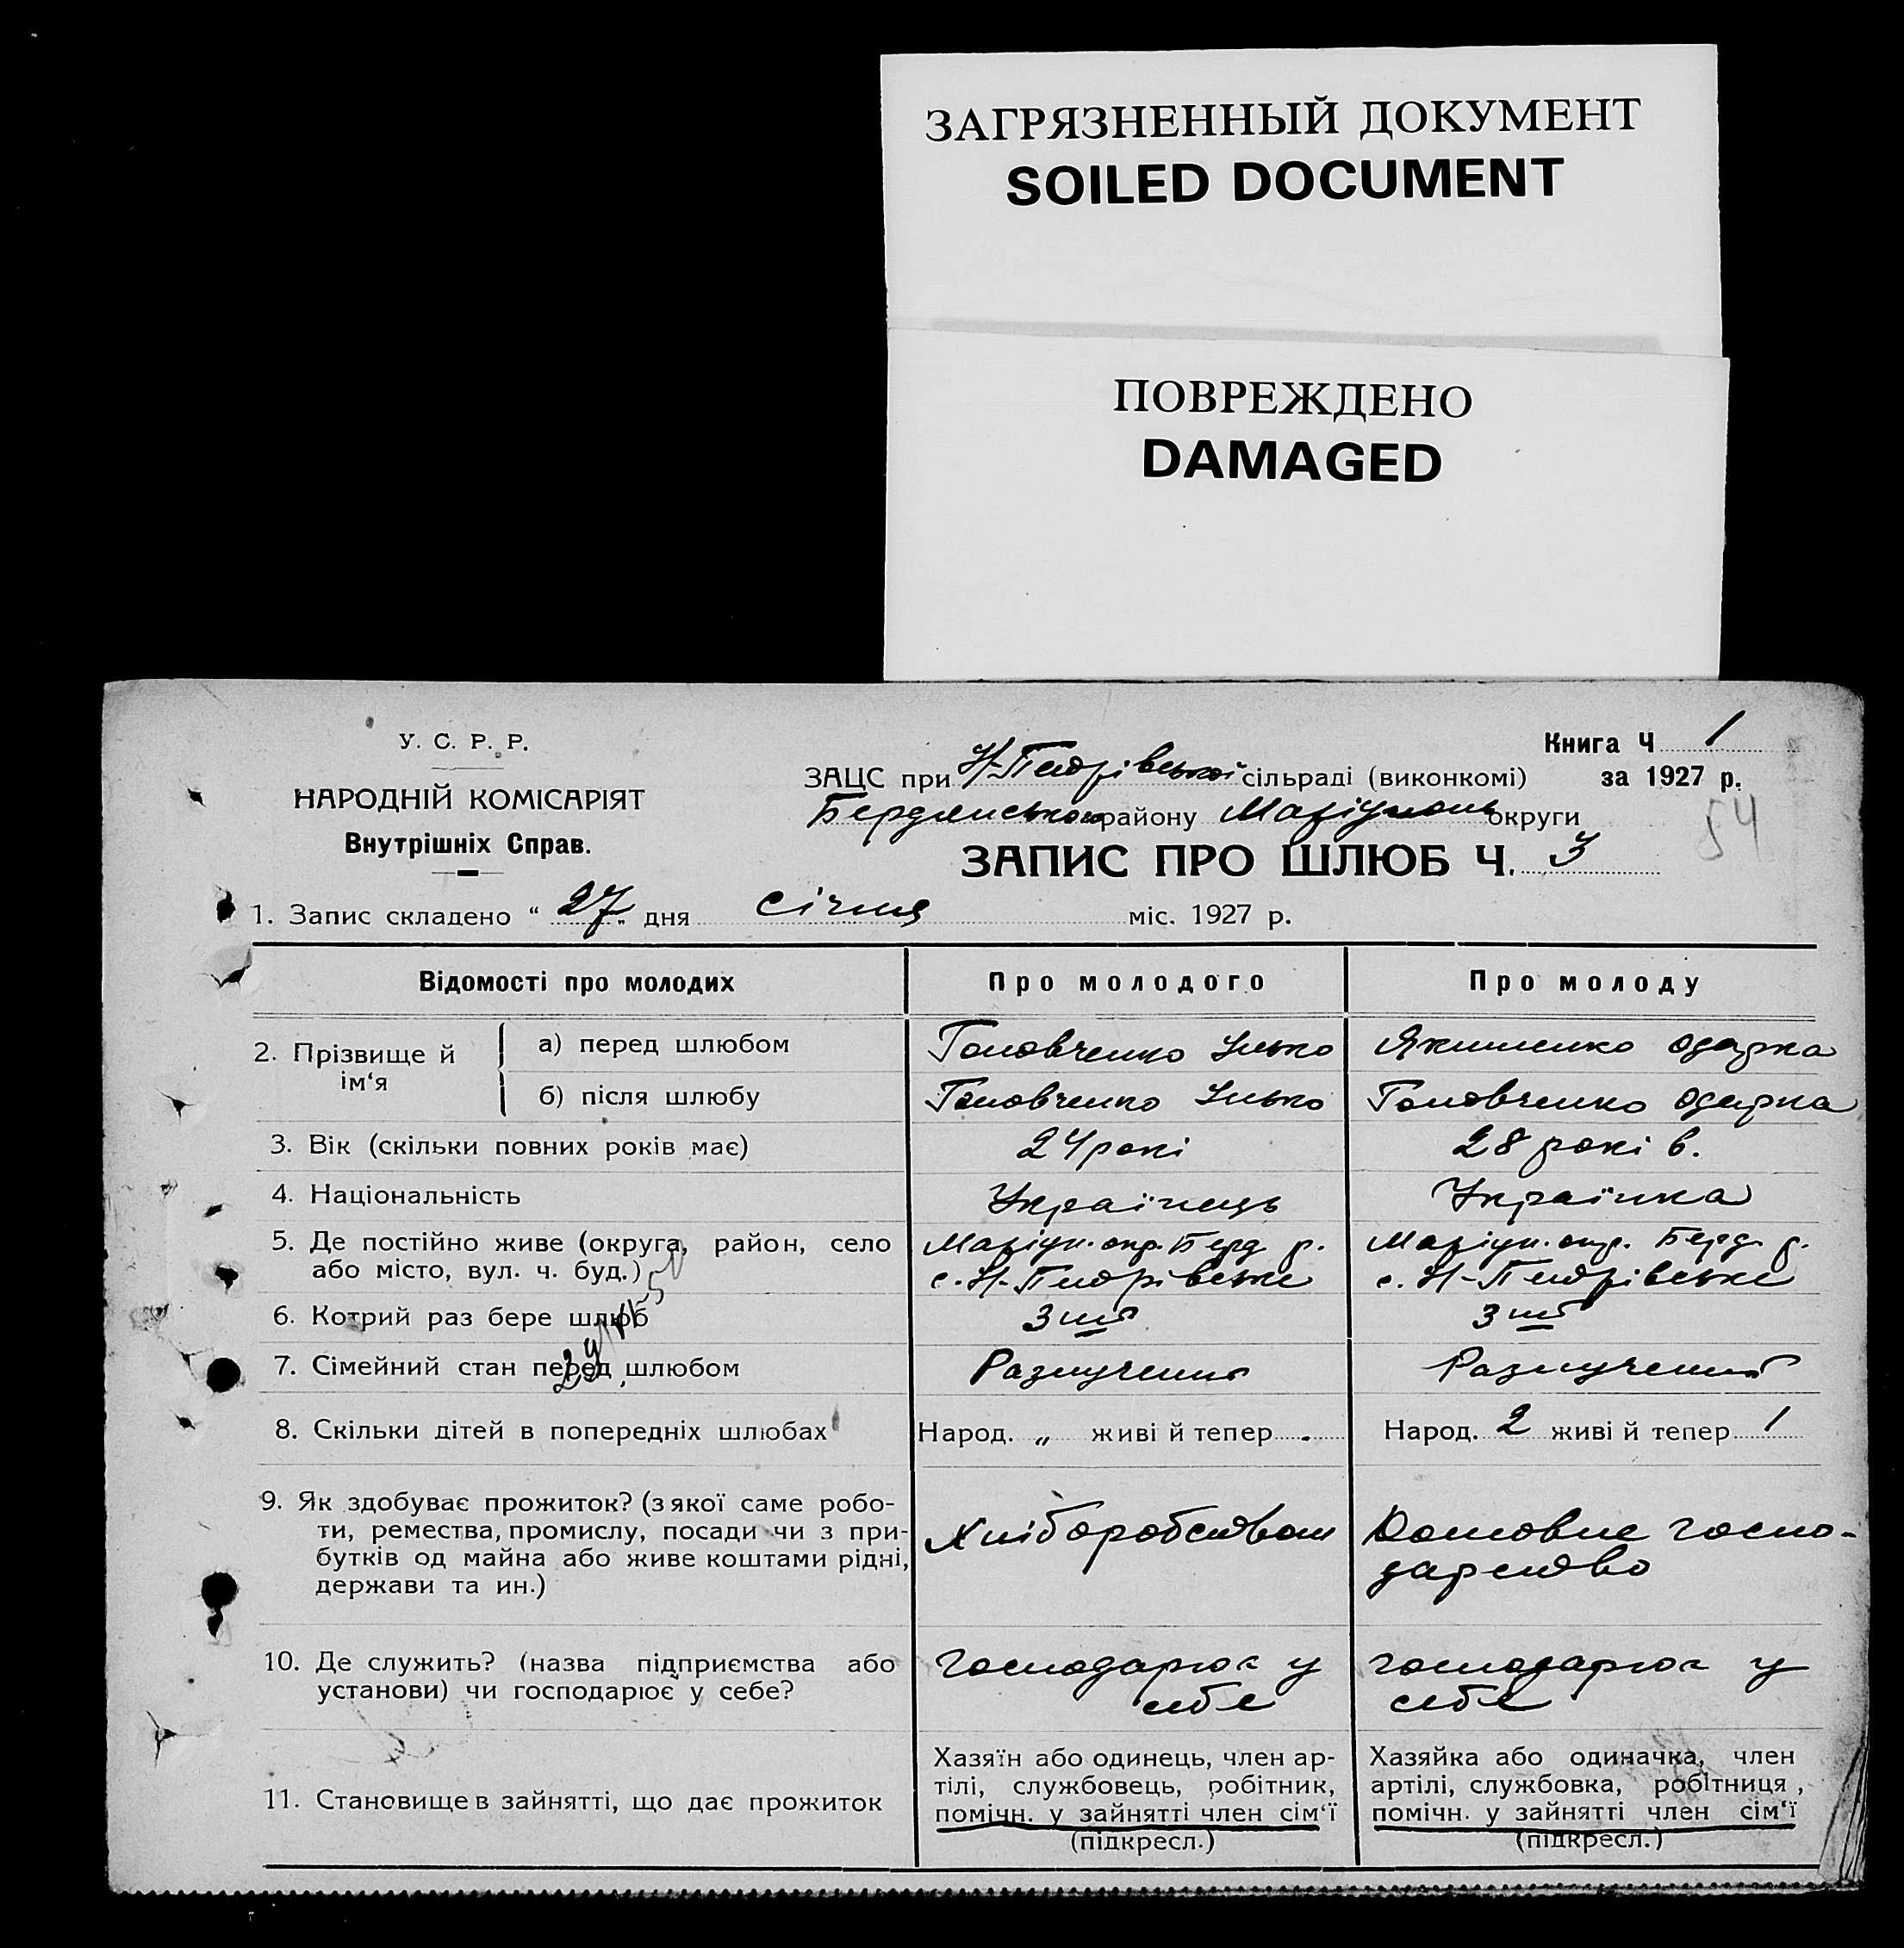 ЗАГРЯЗНЕННЫЙ ДОКУМЕНТ
SOILED DOCUMENT
ПОВРЕЖДЕНО
DAMAGED
У. С. Р. Р.
НАРОДНІЙ КОМІСАРІЯТ
Внутрішніх Справ.
Книга Ч 1
за 1927 р.
54
ЗАЦС при Н-Петрівській сільраді (виконкомі)
Бердянського району Маріупольс округи
ЗАПИС ПРО ШЛЮБ Ч. 3
1. Запис складено “ 27 „ дня січня міс. 1927 р.
Відомості про молодих Про молодого Про молоду
2. Прізвище й ім‘я
а) перед шлюбом Головченко Ілько Якименко Одарка
б) після шлюбу Головченко Ілько Головченко Одарка
3. Вік (скільки повних років має) 24 рокі 28 років.
4. Національність Українець Українка
5. Де постійно живе (округа, район, село Маріуп. окр. Берд. р. Маріуп. окр. Берд. р.
або місто, вул. ч. буд.) с. Н-Петрівське с. Н-Петрівське
6. Котрий раз бере шлюб 3 ий 3 ий
7. Сімейний стан перед шлюбом Разлучений Разлучений
8. Скільки дітей в попередніх шлюбах Народ. „ живі й тепер - Народ. 2 живі й тепер 1
9. Як здобуває прожиток? (з якої саме робо-
ти, ремества, промислу, посади чи з при- Хліборобством Домовне госпо-
бутків од майна або живе коштами рідні, дарство
держави та ин.)
10. Де служить? (назва підприємства або Господарює у господарює у
установи) чи господарює у себе? себе себе
11. Становище в зайнятті, що дає прожиток
Хазяїн або одинець, член ар-
тілі, службовець, робітник,
помічн. у зайнятті член сім‘ї
(підкресл.)
Хазяйка або одиначка, член
артілі, службовка, робітниця,
помічн. у зайнятті член сім‘ї
(підкресл.)